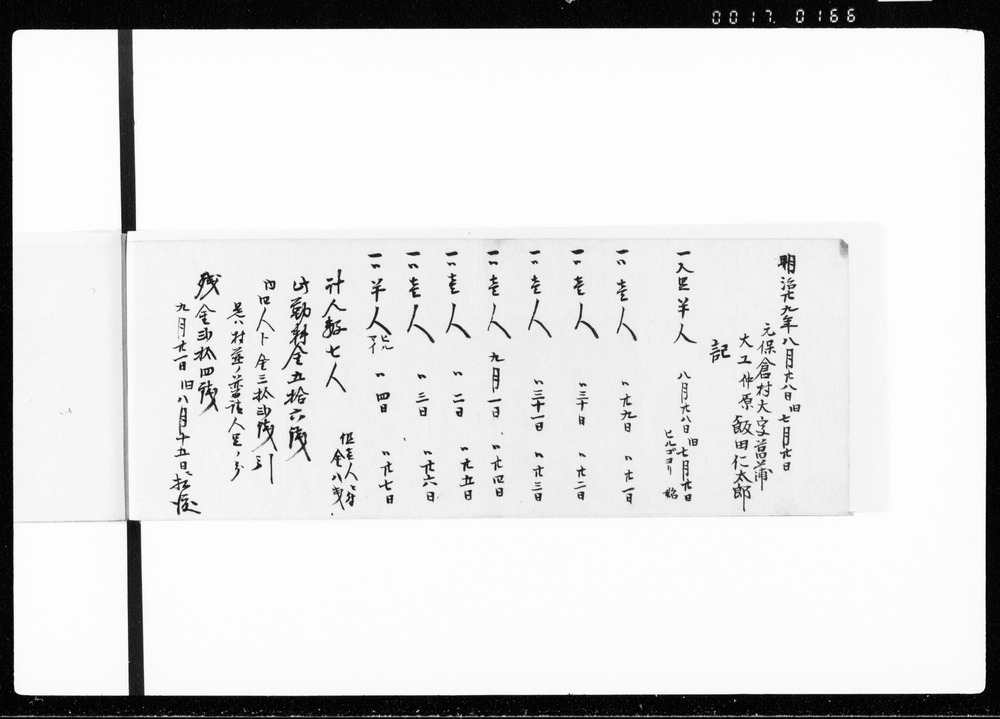 0017.0166
明治廿九年八月廿八日旧七月廿日
元保倉村大字菖蒲
大工仲原飯田仁太郎
記
一人足半人 八月廿八日旧七月廿日
ヒルゴヨリ始
一〃壱人 〃廿九日 〃廿一日
一〃壱人 〃三十日 〃廿二日
一〃壱人 〃三十一日 〃廿三日
一〃壱人 九月一日 〃廿四日
一〃壱人 〃二日 〃廿五日
一〃壱人 〃三日 〃廿六日
一〃半人 ヒルマイ 〃四日 〃廿七日
計人数七人 但壱人ニ付金八戋
此勤料金五拾六銭
内口人卜金三拾弐銭引
是ハ村並ノ普請人足ノ分
残金弐拾四銭
九月廿一日旧八月十五日ニ払渡